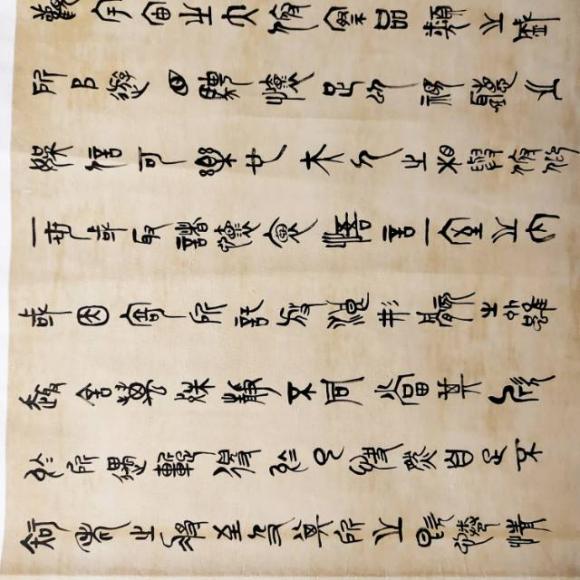 觀宇宙之大俯察品類之盛
所以遊目騁懷足以視聽之
娛信可樂也夫人之相與俯仰
一世或取諸懷抱悟言一室之內
或因寄所託放浪形骸之外雖
趣舍萬殊靜不同當其欣
於所遇暫得於己快然自足不
知老之將至及其所之既倦情